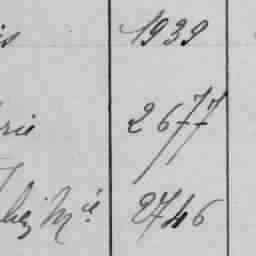 is 1939
rie 2677
chez Mie 2746